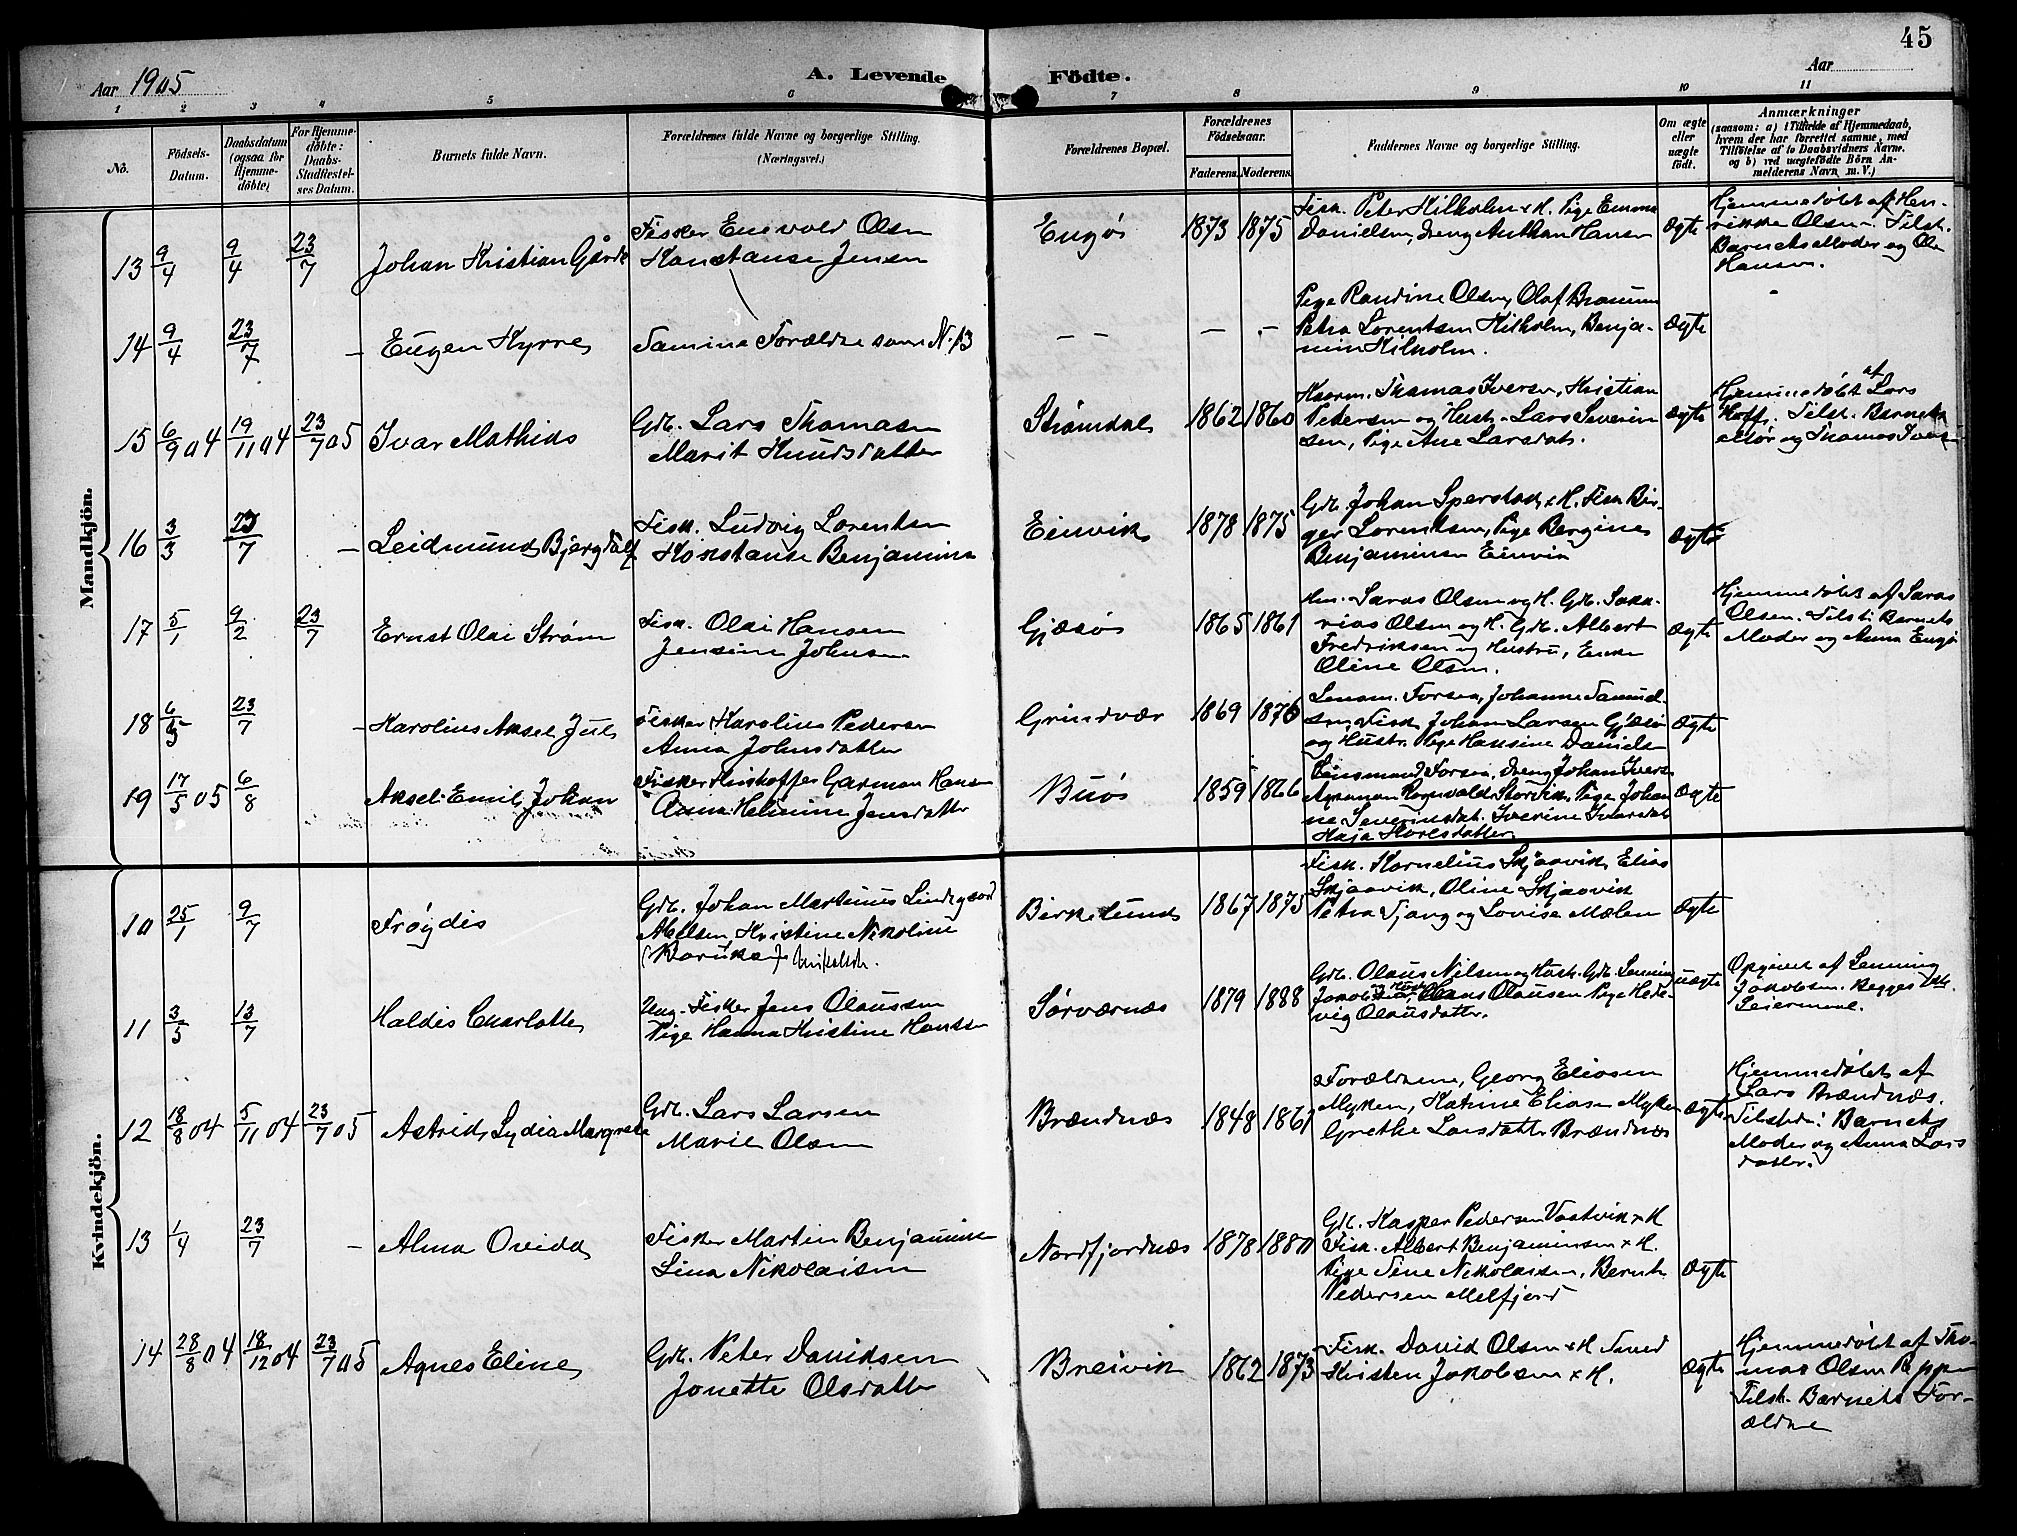 45
Aar 1905
A. Levende Födte.
Aar
1 2 3 4 5 6 7 8 9 10 11
No.
Födsels-
Datum.
Daabsdatum
(ogsaa for
Hjemme-
döbte)
For Hjemme-
döbte:
Daabs-
Stadfestel-
ses Datum.
Barnets fulde Navn.
Forældrenes fulde Navne og borgerlige Stilling.
(Næringsvei.)
Forældrenes Bopæl.
Forældrenes
Födselsaar.
Faderens. Moderens.
Faddernes Navne og borgerlige Stilling.
Om ægte
eller
uægte
födt.
Anmærkninger
(saasom: a) i Tilfælde af Hjemmedaab,
hvem der har forrettet samme, med
Tilföielse af to Daabsvidners Navne.
og b) ved uægtefödte Börn An-
melderens Navn m. V.)
Mandkjön.
13 9/4 9/4 23/7 Johan Kristian Gårde
Fisker Enevold Olsen
Konstanse Jensen
Engø 1873 1875
Fisk. Peter Kilholm & H. Pige Emma
Danielsen, Dreng Anthon Hansen
Ægte
Hjemmedøbt af Hen-
rikke Olsen. Tilst.
Barnets Moder og Ole
Hansen.
14 9/4 23/7 – Eugen Kyrre
Samme Forældre som N. 13
– – – –
Pige Randine Olsen, Olaf
Petra Lorentsen Kilholm, Benja-
min Kilholm.
Ægte
15 6/9 04 19/11 04 23/7 05 Ivar Mathias
Gdb. Lars Thomasen
Marit Knudsdatter
Strømdal 1862 1860
Thomas Iversen, Kristian
Petersen og Hust. Lars Severin
sen, Pige Ane Larsdat.
Ægte
Hjemmedøbt af Lars
Hoff. Tilst. Barnets
Mor og Thomas Ivers
16 3/3 23/7 – Leidmund Bjerg
Fisk. Ludvig Lorentsen
Konstanse Benjamins
Einvik 1878 1875
Gdb. Johan Sperstad & H. Fisk Bir-
ger Lorentsen, Pige Bergine
Benjaminsen Einvik
Ægte
17 5/1 9/2 23/7 Ernst Olai Strøm
Fisk. Olai Hansen
Jensine Johnsen
Gjæsø 1865 1861
Olsen og H. Gdb. Saka-
rias Olsen og H. Gdb. Albert
Fredriksen og Hustru, Enke
Oline Olsen.
Ægte
Hjemmedøbt af
Olsen. Tilst: Barnets
Moder og Anna Engø
18 6/5 23/7 – Karolius Aksel Jul
Fisker Karolius Pedersen
Anna Johnsdatter
Grindvær 1869 1876
Lensm. Forsaa, Johanne Samuel
sen Fisk Johan Larsen Gjæsø
og Hustr. Pige Hansine Daniels
Ægte
19 17/5 05 6/8 Aksel Emil Johan
Fisker Kristoffer Garman Hans
Anna Helmine Jensdatter
Buø 1859 1866
Lensmand Forsaa, Dreng Johan Ivers
Ragnvald Storvik, Pige Johan
ne Severinsdat. Iverine Ivarsdat
Kaja Karlsdatter
Ægte
Kvindekjön.
10 25/1 9/7 Frøydis
Gdb. Johan Martinus Lindgaard
Abelsen Kristine Nikoline
Birkelund 1867 1875
Fisk. Kornelius Skjaavik, Elias
Skjaavik, Oline Skjaavik
Petra Tjong og Lovise Mælen
Ægte
11 3/5 13/7 Haldis Charlotte
Ung. Fisker Jens Olaussen
Pige Hanna Kristine Hansen
Sørværnæs 1879 1888
Gdb. Olaus Nilsen og Hust. Gdb. Lenning
Jakobsen og Hust. Hans Olausen Pige Hede-
vig Olausdatter.
uægte
Opgivet af Lenning
Jakobsen. Begges 1ste
Leiermaal.
12 18/8 04 5/11 04 23/7 05 Astrid Lydia Margrete
Gdb. Lars Larsen
Marie Olsen
Brændnæs 1848 1861
Forældrene, Georg Eliasen
Myken, Katrine Eliasen Myken
Grethe Larsdatter Brændnæs
Ægte
Hjemmedøbt af
Lars Brændnæs.
Tilstede: Barnets
Moder og Anna Lars
datter.
13 1/4 23/7 – Alma Ovida
Fisker Martin Benjaminsen
Lina Nikolaisen
Nordfjordnæs 1878 1880
Gdb. Kasper Pedersen Vaatvik & H
Fisk. Albert Benjaminsen & H.
Pige Sine Nikolaisen, Bernt
Pedersen Melfjord
Ægte
14 28/8 04 18/12 04 23/7 05 Agnes Eline
Gdb. Peter Davidsen
Jonette Olsdatter
Breivik 1862 1873
Fisk. David Olsen & H
Kristen Jakobsen & H.
Ægte
Hjemmedøbt af Tho-
mas Olsen
Tilst. Barnets For-
ældre